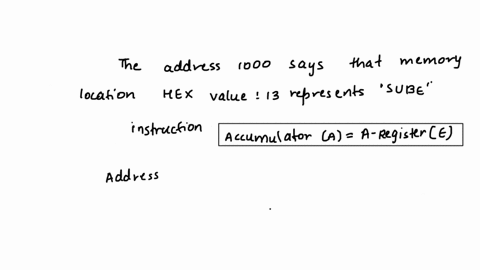 The address 1000 says that memory
location HEX value : 13 represents 'SUBE'
instruction Accumulator (A) = A-Register(E)
Address